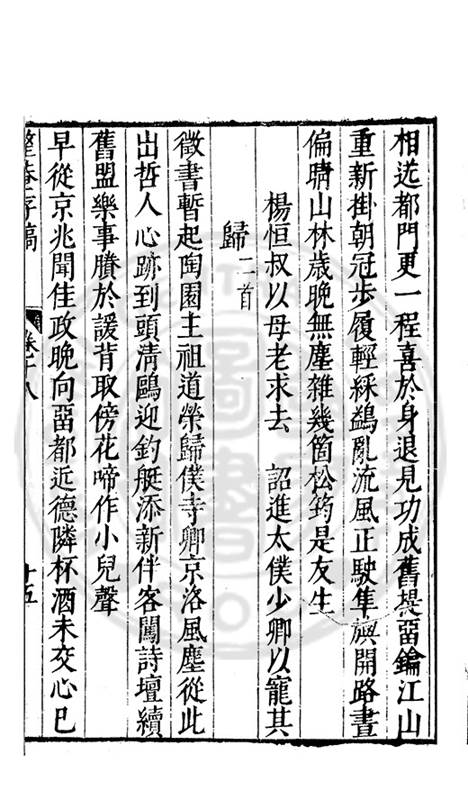 相送都門更一程喜於身退見功成舊提留鑰江山
重新掛朝冠步履輕綵鷁亂流風正駛隼旟開路晝
偏晴山林歲晚無塵雜幾箇松筠是友生
楊恒叔以母老求去　詔進太僕少卿以寵其
歸二首
徵書暫起陶園主祖道榮歸僕寺卿京洛風塵從此
出哲人心跡到頭清鷗迎釣艇添新伴客闖詩壇續
舊盟樂事賸於諼背取傍花啼作小兒聲
早從京兆聞佳政晚向畱都近德隣杯酒未交心已
整菴存稿
卷十八
十五